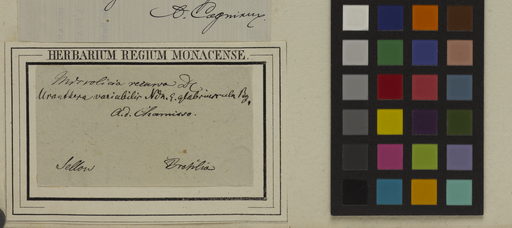 A. Cogniaux
HERBARIUM REGIUM MONACENSE.
Microlicia recurva DC
Uranthera variabilis Ndn. ε. glabriuscula
Ad. Chamisso.
Sellow Brasilia